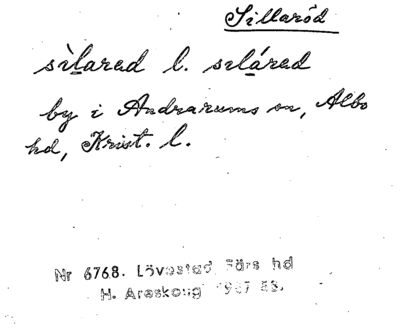 Sillaröd
sìlarad l. sılárad
by i Andrarums sn, Albo
hd, Krist. l.
Nr 6768. Lövestad Färs hd
H. Areskoug